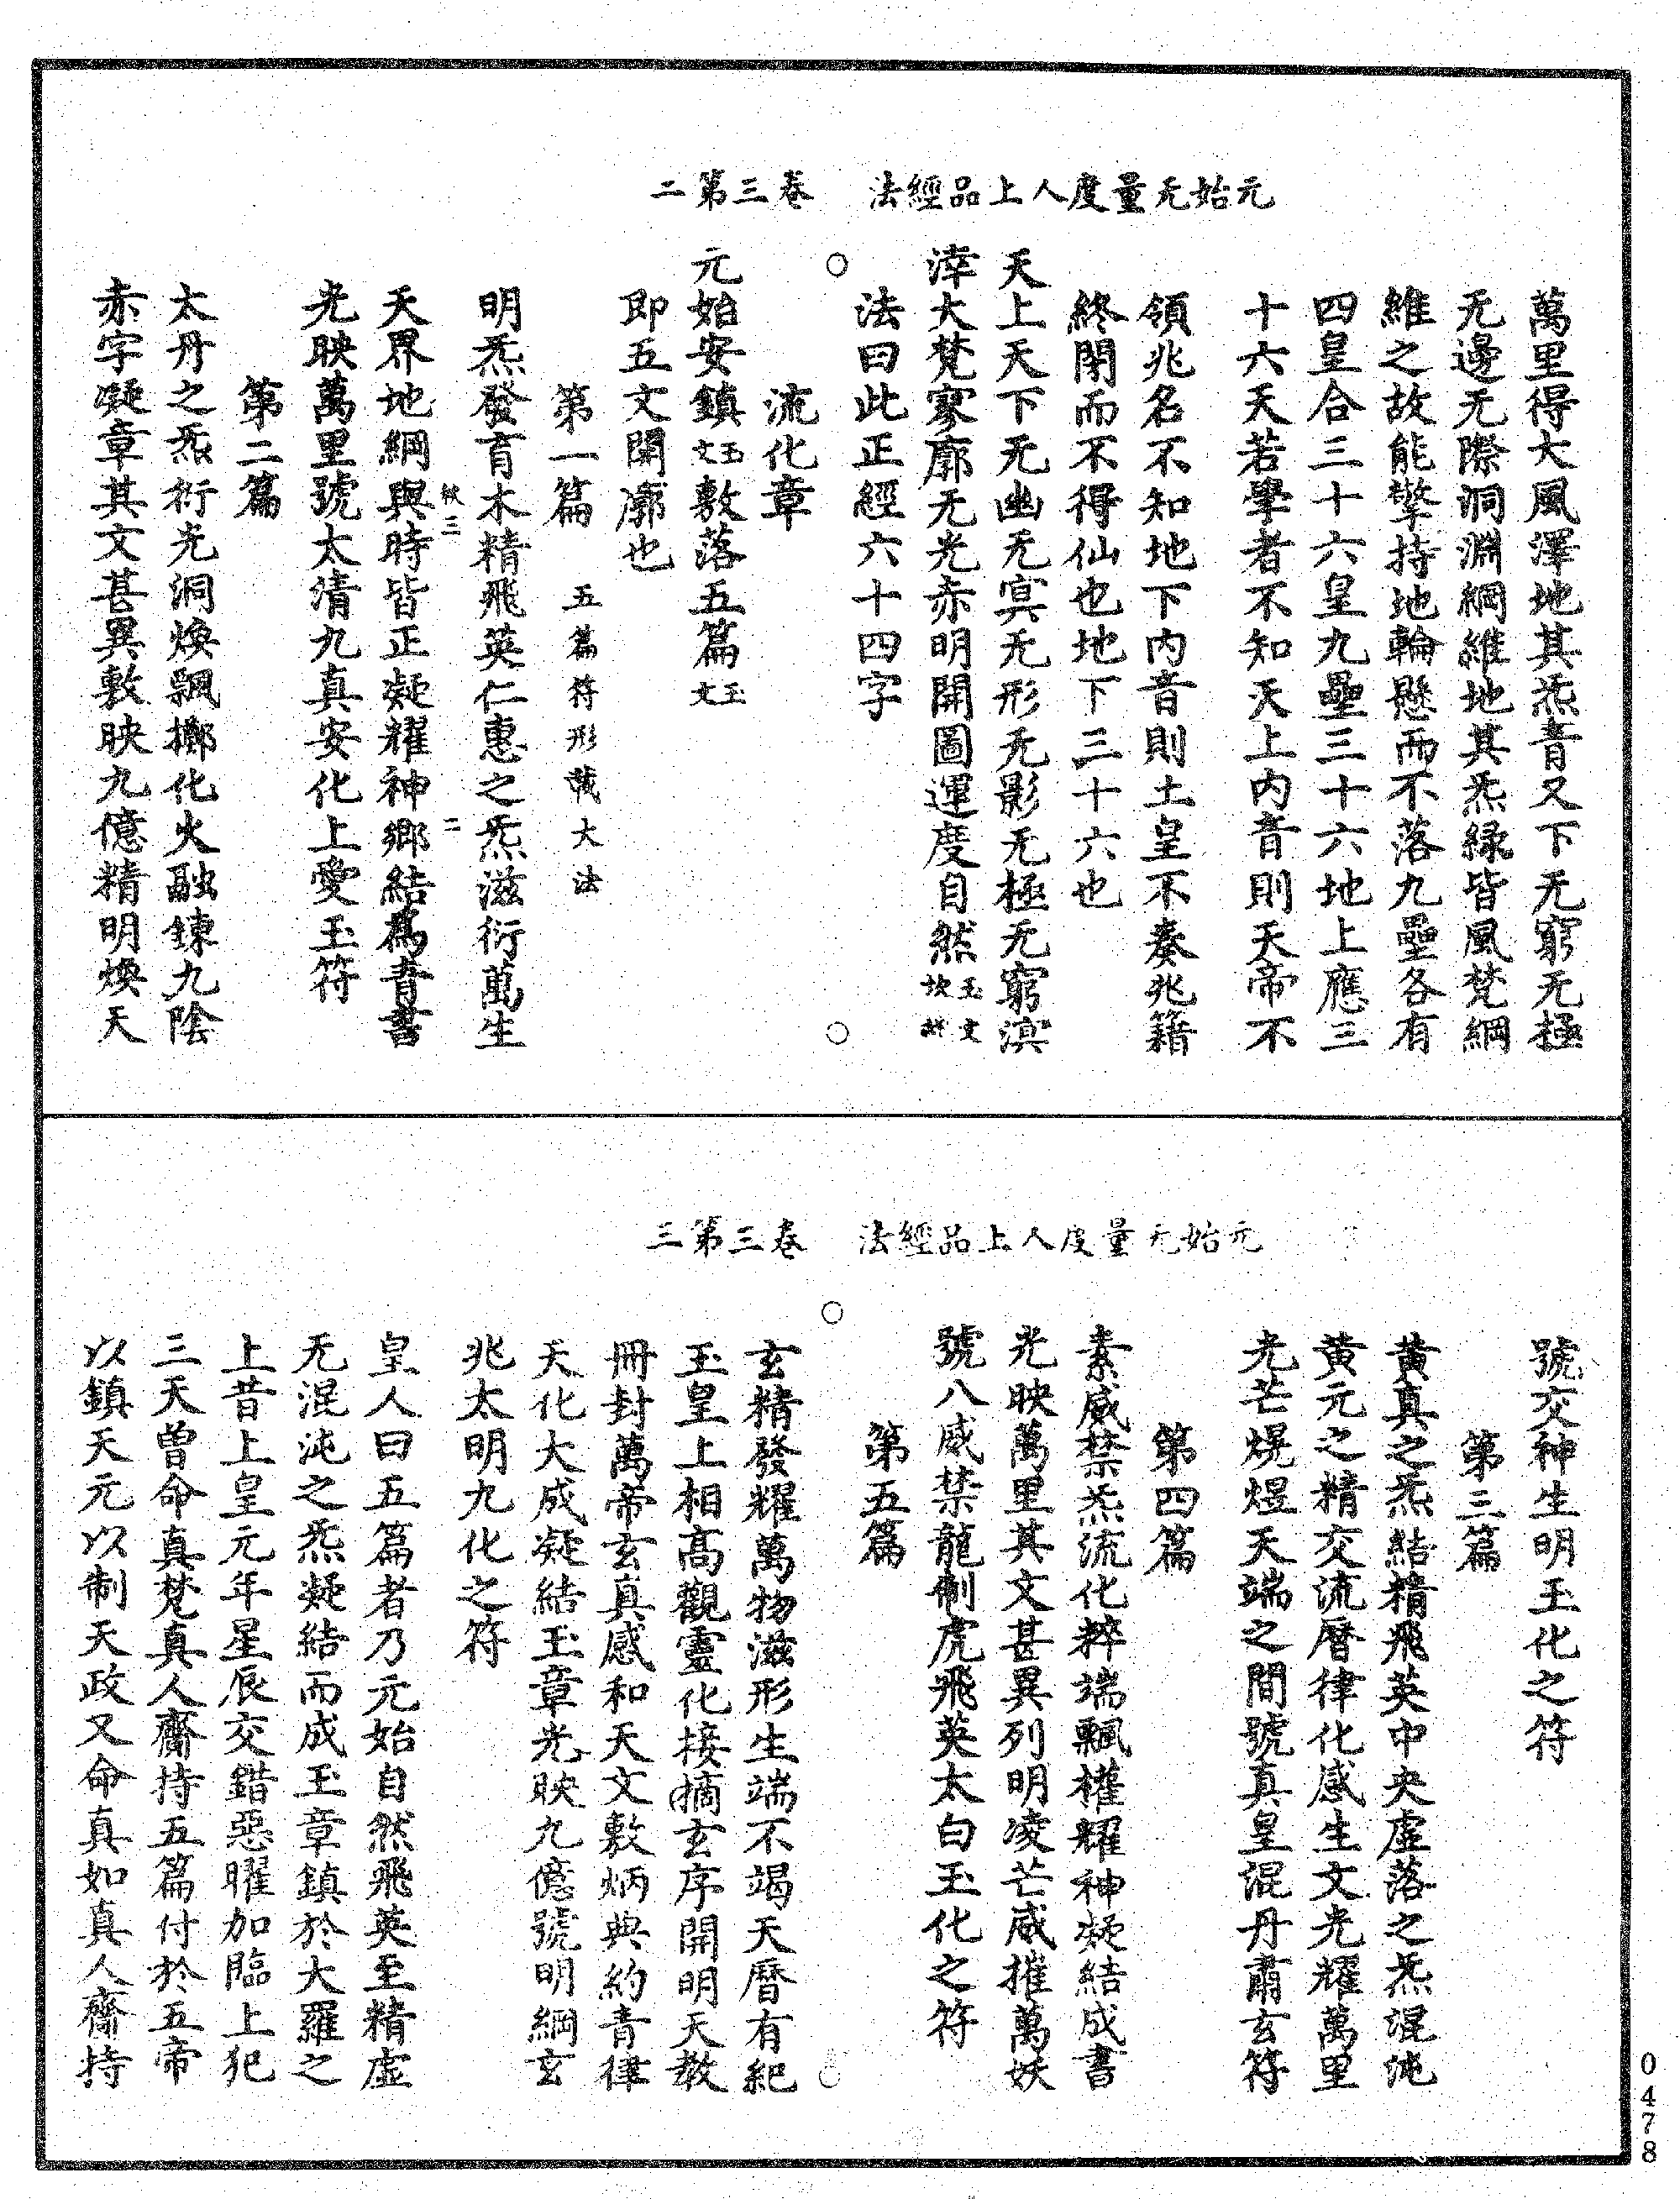 元始无量度人上品經法　卷三第二
萬里得大風澤地其炁青又下无窮无極
无邊无際洞淵綱維地其炁緑皆風梵綱
維之故能擎持地輪懸而不落九壘各有
四皇合三十六皇九壘三十六地上應三
十六天若學者不知天上内音則天帝不
領兆名不知地下内音則土皇不奏兆籍
終閉而不得仙也地下三十六也
天上天下无幽无冥无形无影无極无窮溟
涬大梵寥廓无光赤明開圖運度自然玉文
法曰此正經六十四字
流化章
元始安鎮玉文敷落五篇玉文
即五文開廓也
第一篇　五篇符形載大法
明炁發育木精飛英仁惠之炁滋衍萬生
天界地綱與時皆正凝耀神鄉結爲青書
光映萬里號太清九真安化上愛玉符
第二篇
太丹之炁衍光洞煥飄擲化火融鍊九陰
赤字凝章其文甚異敷映九億精明煥天
元始无量度人上品經法　卷三第三
號交神生明玉化之符
第三篇
黄真之炁結精飛英中央虛落之炁混沌
黄元之精交流曆律化感生文光耀萬里
光芒熀煜天端之間號真皇混丹肅玄符
第四篇
素威禁炁流化粹端飄權耀神凝結成書
光映萬里其文甚異列明凌芒威摧萬妖
號八威禁龍制虎飛英太白玉化之符
第五篇
玄精發耀萬物滋形生端不竭天曆有紀
玉皇上相髙觀靈化接摘玄序開明天教
冊封萬帝玄真感和天文敷炳典約青律
天化大成凝結玉章光映九億號明綱玄
兆太明九化之符
皇人曰五篇者乃元始自然飛英至精虛
无混沌之炁凝結而成玉章鎮於大羅之
上昔上皇元年星辰交錯惡曜加臨上犯
三天曾命真梵真人齎持五篇付於五帝
以鎮天元以制天政又命真如真人齎持
0478